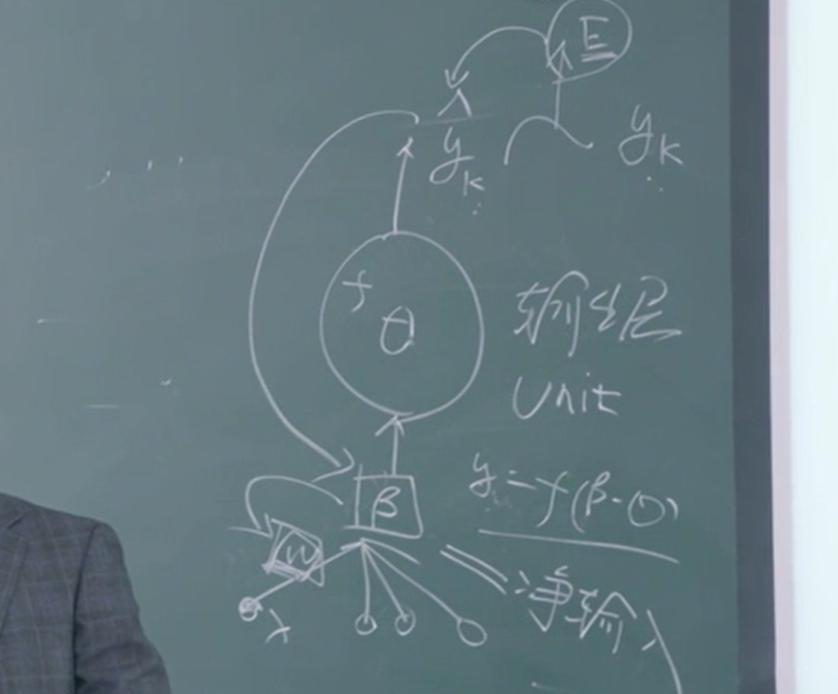 E
ŷk yk
f
θ
输出层
Unit
β
y=f(β-θ)
w
净输入